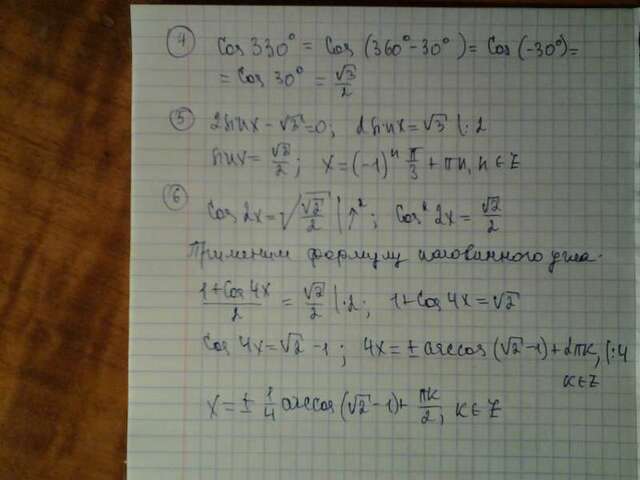 ④ Cos 330° = Cos (360°-30°) = Cos (-30°) =
= Cos 30° = √3/2
⑤ 2sinx - √3 = 0; 2sinx = √3 |:2
sinx = √3/2; x = (-1)ⁿ π/3 + πn, n ∈ Z
⑥ Cos 2x = √(√2/2) |↑²; Cos² 2x = √2/2
Применим формулу половинного угла.
(1+Cos 4x)/2 = √2/2 |·2; 1+Cos 4x = √2
Cos 4x = √2 - 1; 4x = ± arccos (√2-1) + 2πk, |:4
k ∈ Z
x = ± 1/4 arccos (√2-1) + πk/2, k ∈ Z